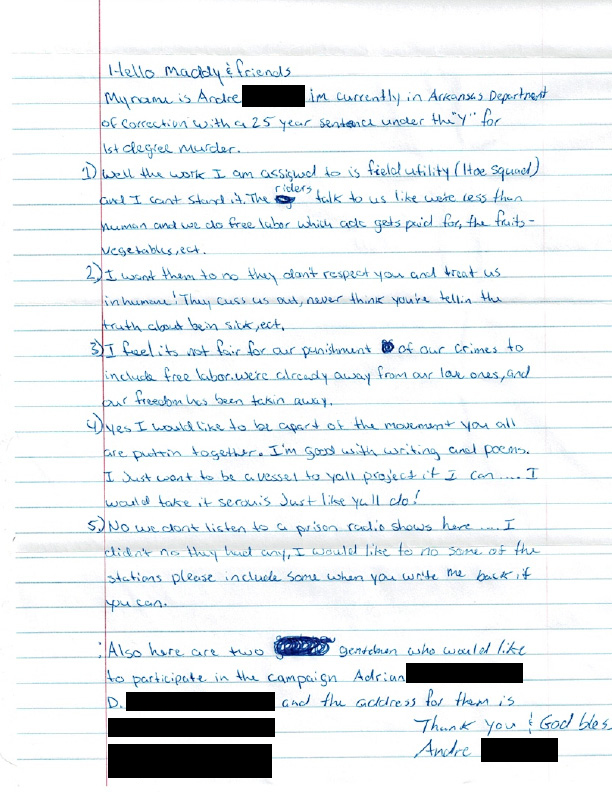 Hello Maddy & friends
My name is Andre im currently in Arkansas Department
of correction with a 25 year sentence under the "Y" for
1st degree murder.
1) Well the work I am assigned to is field utility (Hoe Squad)
and I cant stand it. The riders talk to us like we're less than
human and we do free labor which adc gets paid for, the fruits-
vegetables, ect.
2) I want them to no they don't respect you and treat us
inhumane! They cuss us out, never think you're tellin the
truth about bein sick, ect.
3) I feel its not fair for our punishment of our crimes to
include free labor. we're already away from our love ones, and
our freedom has been takin away.
4) yes I would like to be apart of the movement you all
are puttin together. I'm good with writing and poems.
I Just want to be a vessel to yall project if I can.... I
would take it serouis Just like yall do!
5) No we dont listen to a prison radio shows here .... I
didn't no they had any, I would like to no some of the
stations please include some when you write me back if
you can.
: Also here are two gentelmen who would like
to participate in the campaign Adrian
D. and the address for them is
Thank you & God bles
Andre